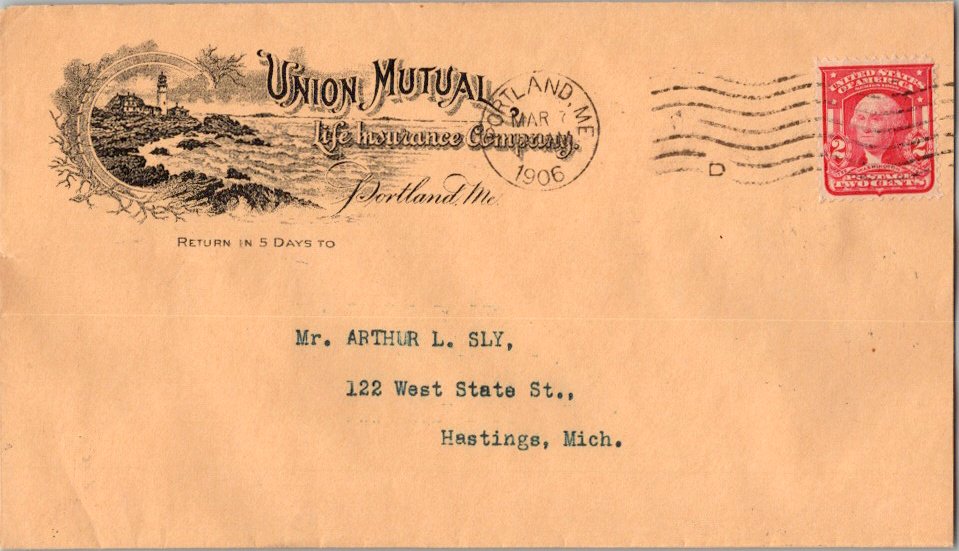 UNION MUTUAL
Life Insurance Company.
Portland, Me.
RETURN IN 5 DAYS TO
PORTLAND, ME
MAR 7
1906
D
UNITED STATES
OF AMERICA
SERIES 1902
2 2
POSTAGE
TWO CENTS
Mr. ARTHUR L. SLY,
122 West State St.,
Hastings, Mich.